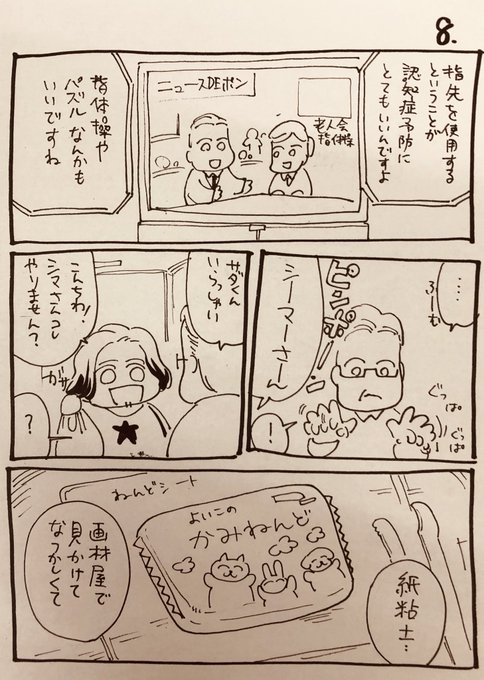 8.
指先を使用する
ということが
認知症予防に
とてもいいんですよ
ニュースDEポン
老人会
指体操
指体操や
パズルなんかも
いいですね
‥‥
ふーむ
ピンポーン
シーマーさーん
ぐっぱ
ぐっぱ
!
サダくん
いらっしゃい
こんちわ!
シマさんコレ
やりません?
ガサ
?
ねんどシート
よいこの
かみねんど
紙粘土…
画材屋で
見かけて
なつかしくて